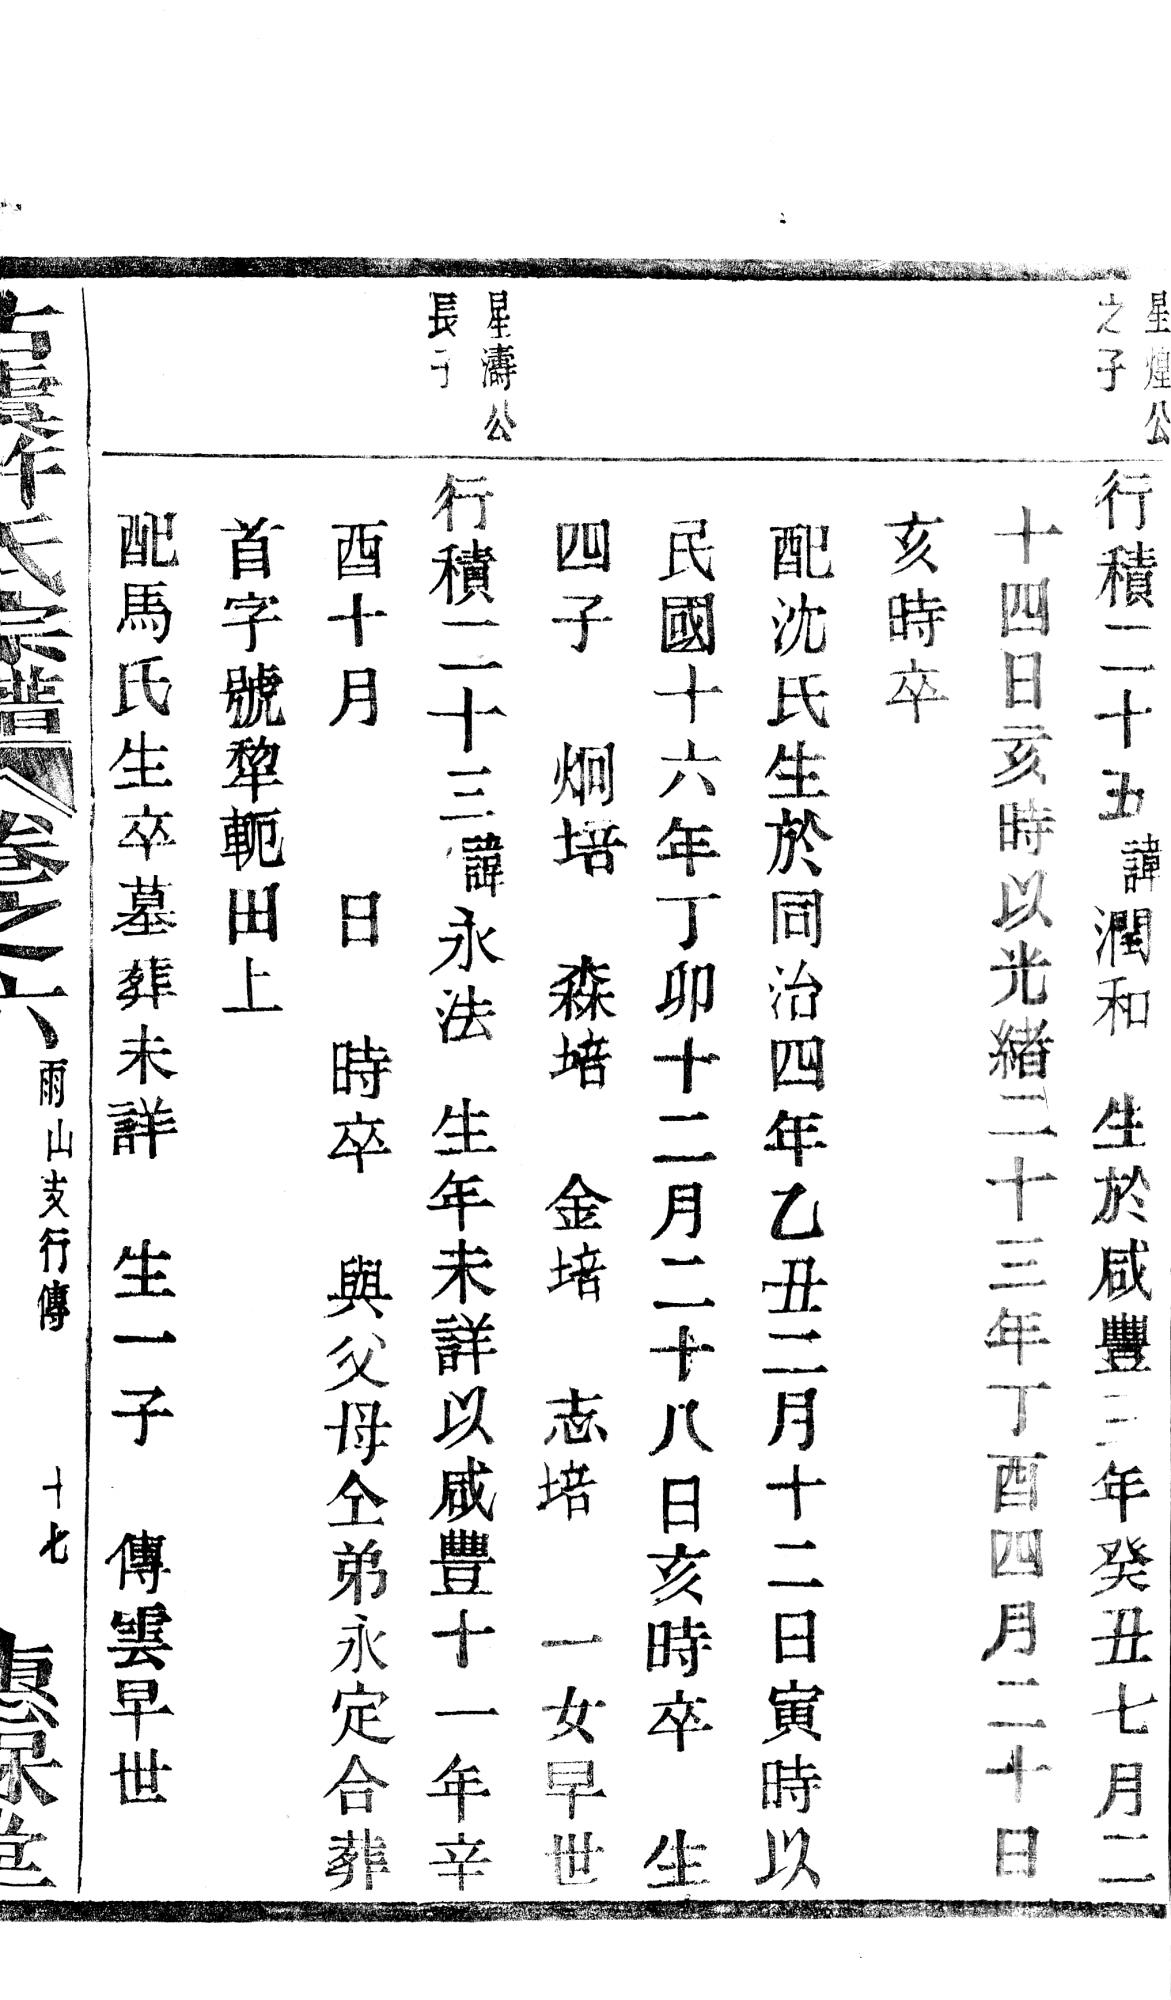 星煌公
之子
行積二十五諱潤和　生於咸豐三年癸丑七月二
十四日亥時以光緒二十三年丁酉四月二十日
亥時卒
配沈氏生於同治四年乙丑二月十二日寅時以
民國十六年丁卯十二月二十八日亥時卒　生
四子　炯培　森培　金培　志培　一女早世
星濤公
長子
行積二十三諱永法　生年未詳以咸豐十一年辛
酉十月　日　時卒　與父母仝弟永定合葬
首字號犂軛田上
配馬氏生卒墓葬未詳　生一子　傳雲早世
古虞許氏宗譜　卷之六　雨山支行傳　十七　惠保堂